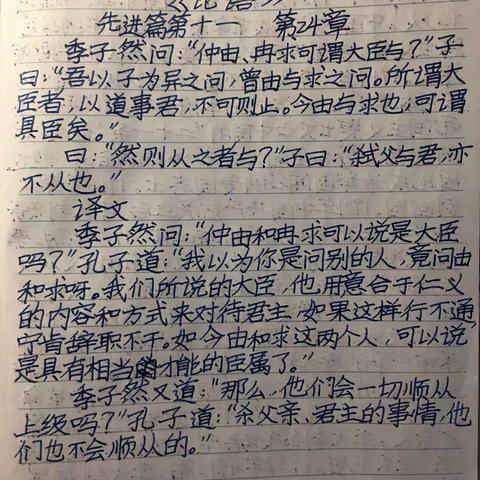 《论语》
先进篇第十一 第24章
季子然问:“仲由、冉求可谓大臣与?”子
曰:“吾以子为异之问,曾由与求之问。所谓大
臣者,以道事君,不可则止。今由与求也,可谓
具臣矣。”
曰:“然则从之者与?”子曰:“弑父与君,亦
不从也。”
译文
季子然问:“仲由和冉求可以说是大臣
吗?”孔子道:“我以为你是问别的人,竟问由
和求呀。我们所说的大臣,他用意合于仁义
的内容和方式来对待君主,如果这样行不通,
宁肯辞职不干。如今由和求这两个人,可以说
是具有相当的才能的臣属了。”
季子然又道:“那么,他们会一切顺从
上级吗?”孔子道:“杀父亲、君主的事情,他
们也不会顺从的。”